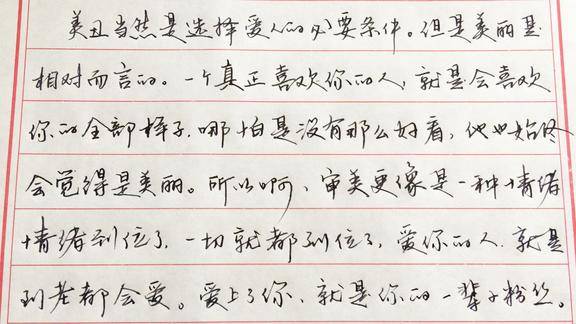 美丑当然是选择爱人的必要条件。但是美丽是
相对而言的。一个真正喜欢你的人，就是会喜欢
你的全部样子，哪怕是没有那么好看，他也始终
会觉得是美丽。所以啊，审美更像是一种情绪
情绪到位了，一切就都到位了，爱你的人，就是
到老都会爱。爱上了你，就是你的一辈子粉丝。